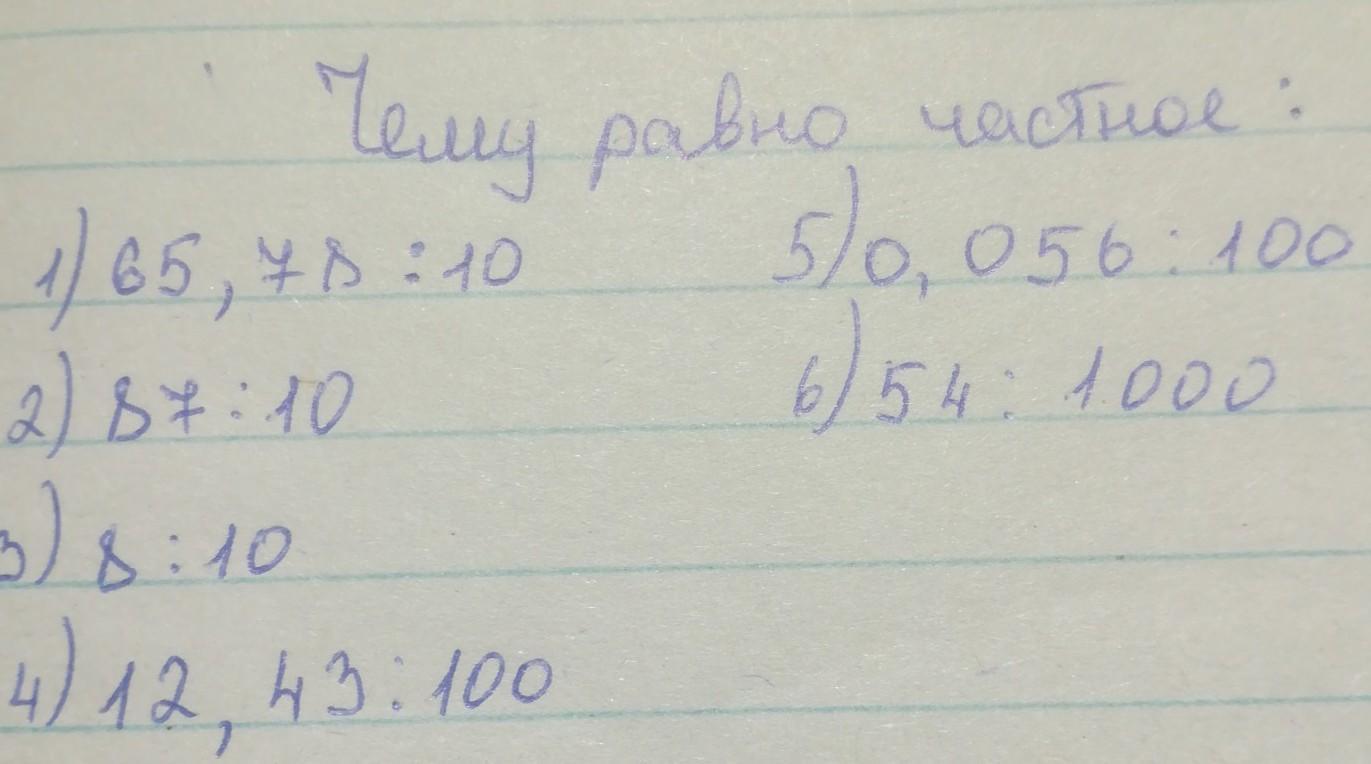 Чему равно частное:
1) 65,78:10
2) 87:10
3) 8:10
4) 12,43:100
5) 0,056:100
6) 54:1000